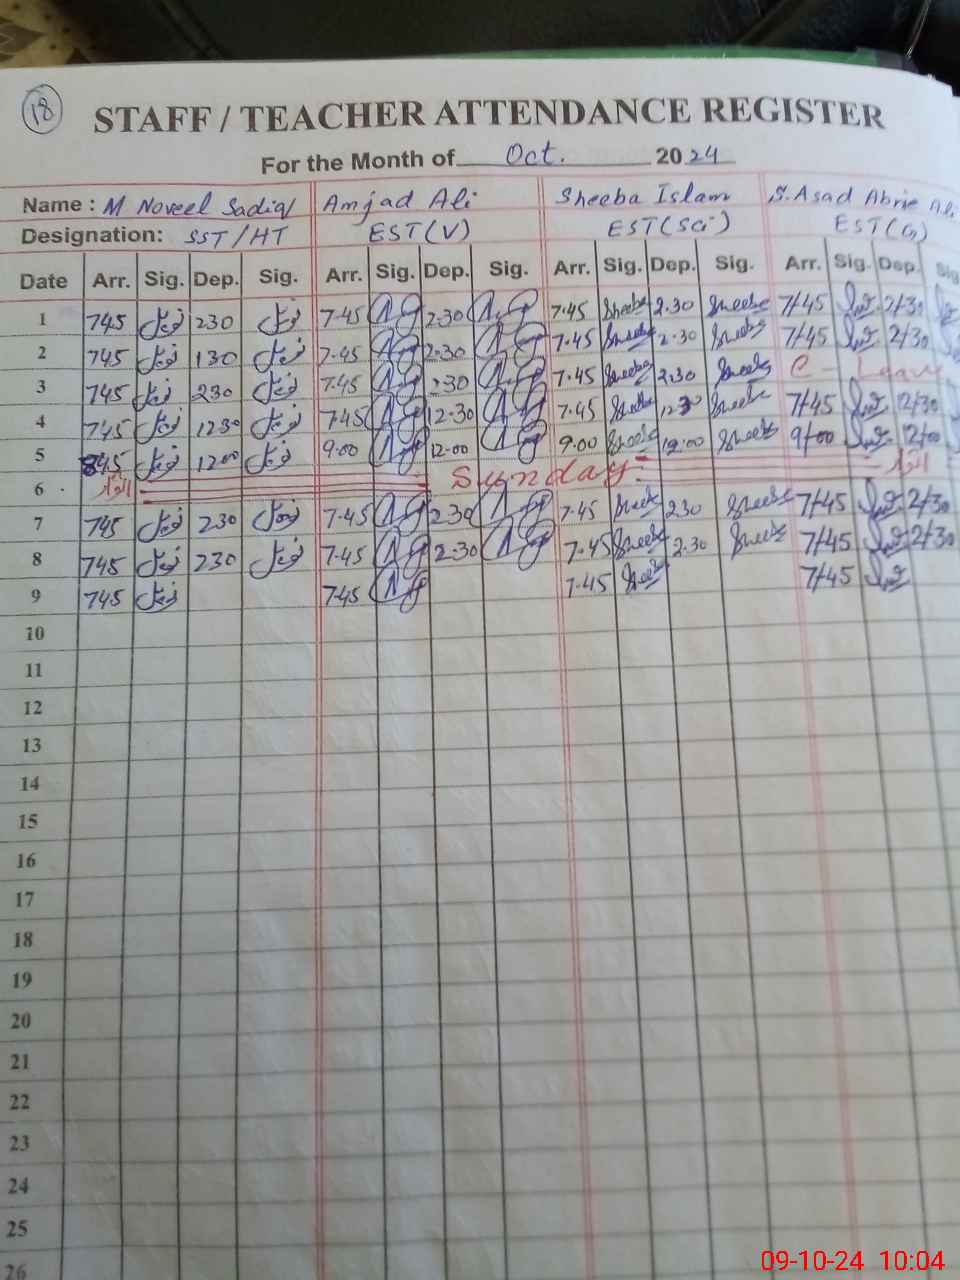 18
STAFF / TEACHER ATTENDANCE REGISTER
For the Month of Oct. 2024
Name : M Noveel Sadiq Amjad Ali Sheeba Islam S. Asad Abrir Ali
Designation: SST/HT EST(V) EST(Sci) EST(G)
Date Arr. Sig. Dep. Sig. Arr. Sig. Dep. Sig. Arr. Sig. Dep. Sig. Arr. Sig. Dep. Sig
1 745 230 7-45 2-30 7.45 Sheeba 2.30 Sheeba 7/45 2/30
2 745 130 7.45 2-30 7.45 Sheeba 2.30 Sheeba 7/45 2/30
3 745 230 7.45 2:30 7.45 Sheeba 2.30 Sheeba C - Leave
4 745 1230 745 12-30 7.45 Sheeba 1230 Sheeba 7/45 12/30
5 845 1200 9.00 12.00 9.00 Sheeba 12.00 Sheeba 9/00 12/00
6 اتوار Sunday اتوار
7 745 230 7.45 2-30 7.45 Sheeba 230 Sheeba 7/45 2/30
8 745 230 7.45 2-30 7.45 Sheeba 2.30 Sheeba 7/45 2/30
9 745 745 7.45 Sheeba 7/45
10
11
12
13
14
15
16
17
18
19
20
21
22
23
24
25
26
09-10-24 10:04